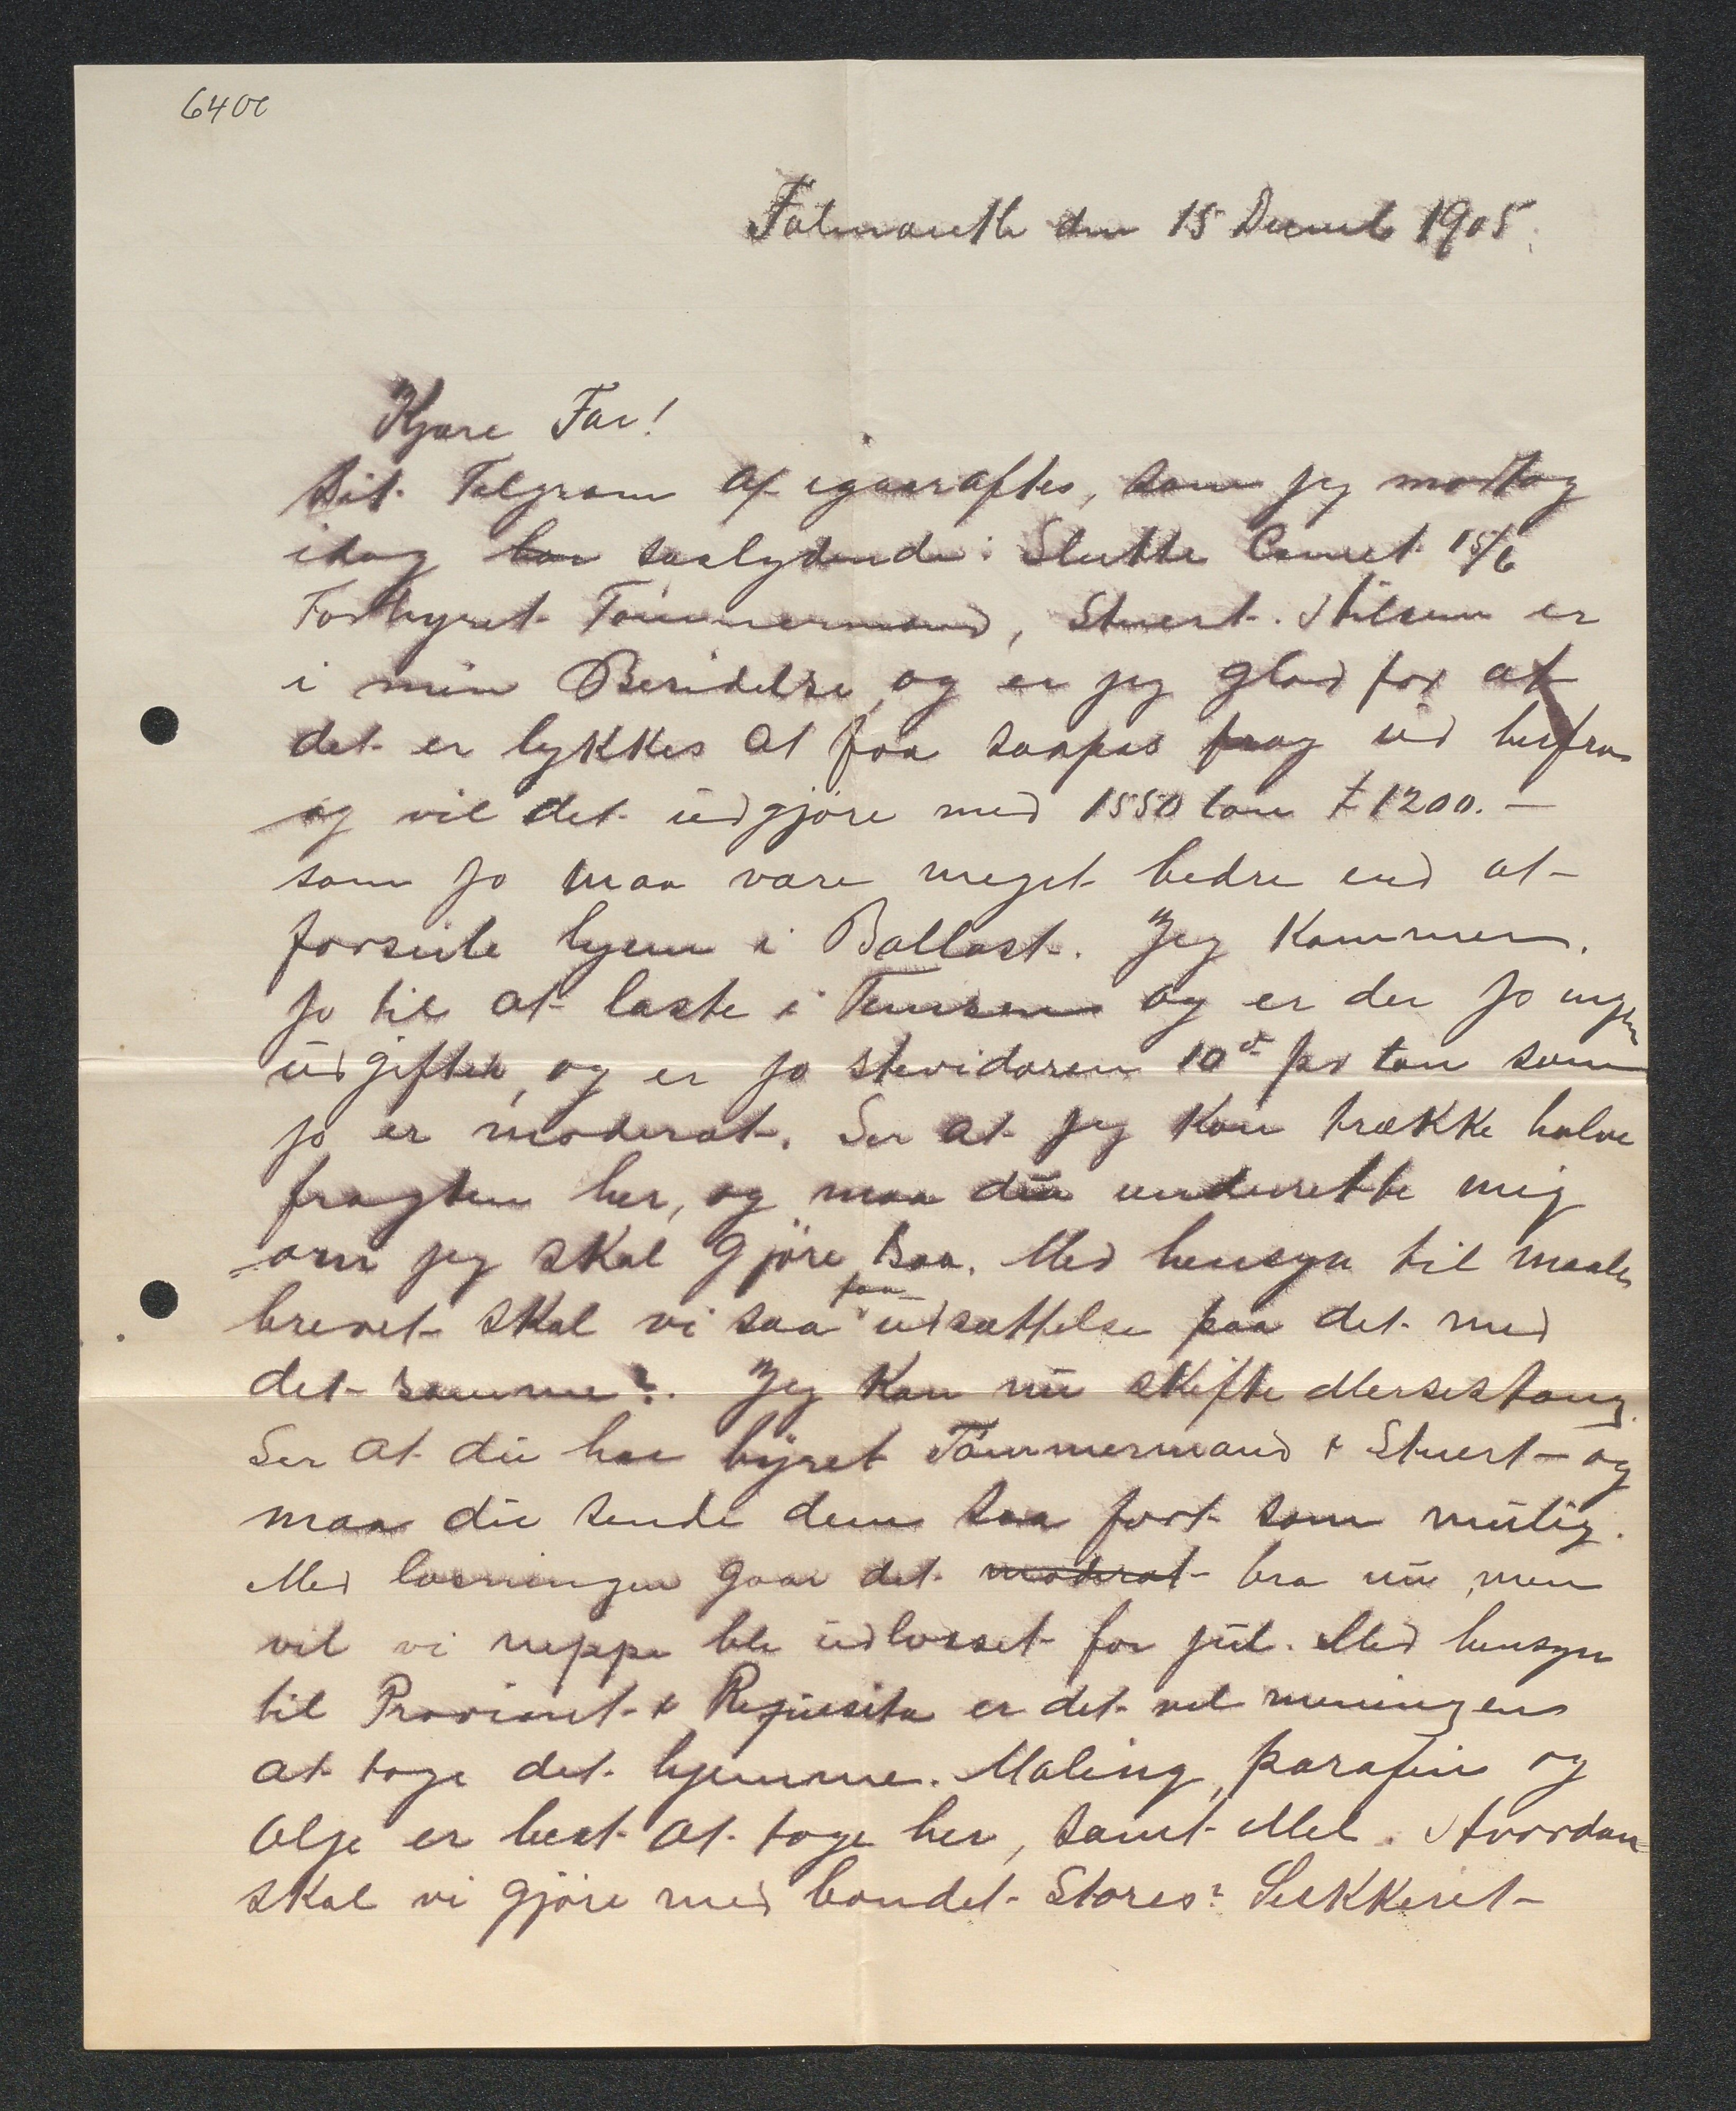 6400
Falmouth den 15 Decemb 1905.
Kjære Far!
Dit Telgram af igaaraftes, som jeg mottog
idag saalydende: Slutte Cement 15/6
Forhyret Tömmermand, Stuert. Hilsen er
i min Besidelse, og er jeg glad for at
det er lykkes at faa saapas frag ud herfra
og vil det udgjöre med 1550 ton £1200.—
som jo maa være meget bedre end at
forseile hjem i Ballast. Jeg kommer
jo til at laste i Temsen og er der jo ingen
udgifter, og er jo stevidoren 10d pr ton som
jo er moderat. Ser at jeg kan trække halve
fragten her, og maa du underette mig
om jeg skal gjöre saa. Med hensyn til maale
brevet skal vi saa faa udsættelse paa det med
det samme?. Jeg kan nu skifte Mersestang.
Ser at du har hyret Tömmermand & Stuert og
maa du sende dem saa fort som mulig.
Med losningen gaar det moderat bra nu, men
vil vi neppe ble udlosset for jul. Med hensyn
til Proviant & Requisita er det vel meningen
at tage det hjemme. Maling, parafin og
Olje er best at tage her, samt Mel. Hvordan
skal vi gjöre med bondet Stores? Sukkeret